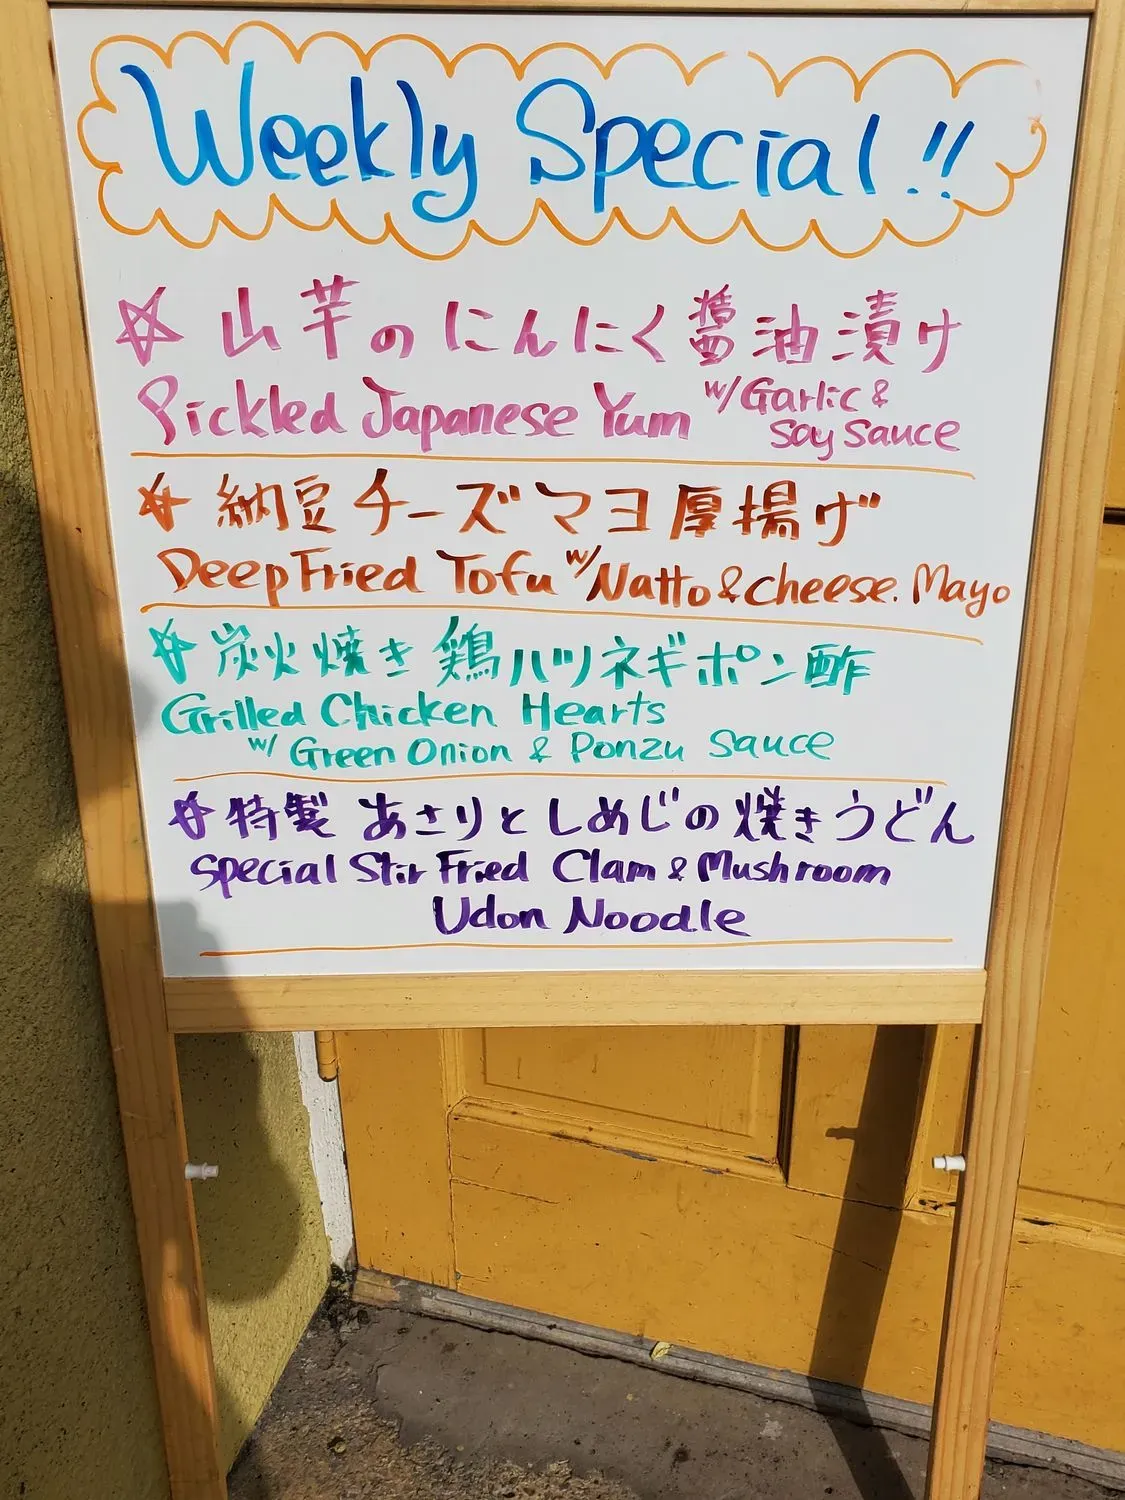 Weekly Special!!
山芋のにんにく醤油漬け
Pickled Japanese Yum w/Garlic &
Soy Sauce
納豆チーズマヨ厚揚げ
Deep Fried Tofu w/Natto & cheese. Mayo
炭火焼き鶏ハツネギポン酢
Grilled Chicken Hearts
w/ Green Onion & Ponzu Sauce
特製 あさりとしめじの焼きうどん
Special Stir Fried Clam & Mushroom
Udon Noodle